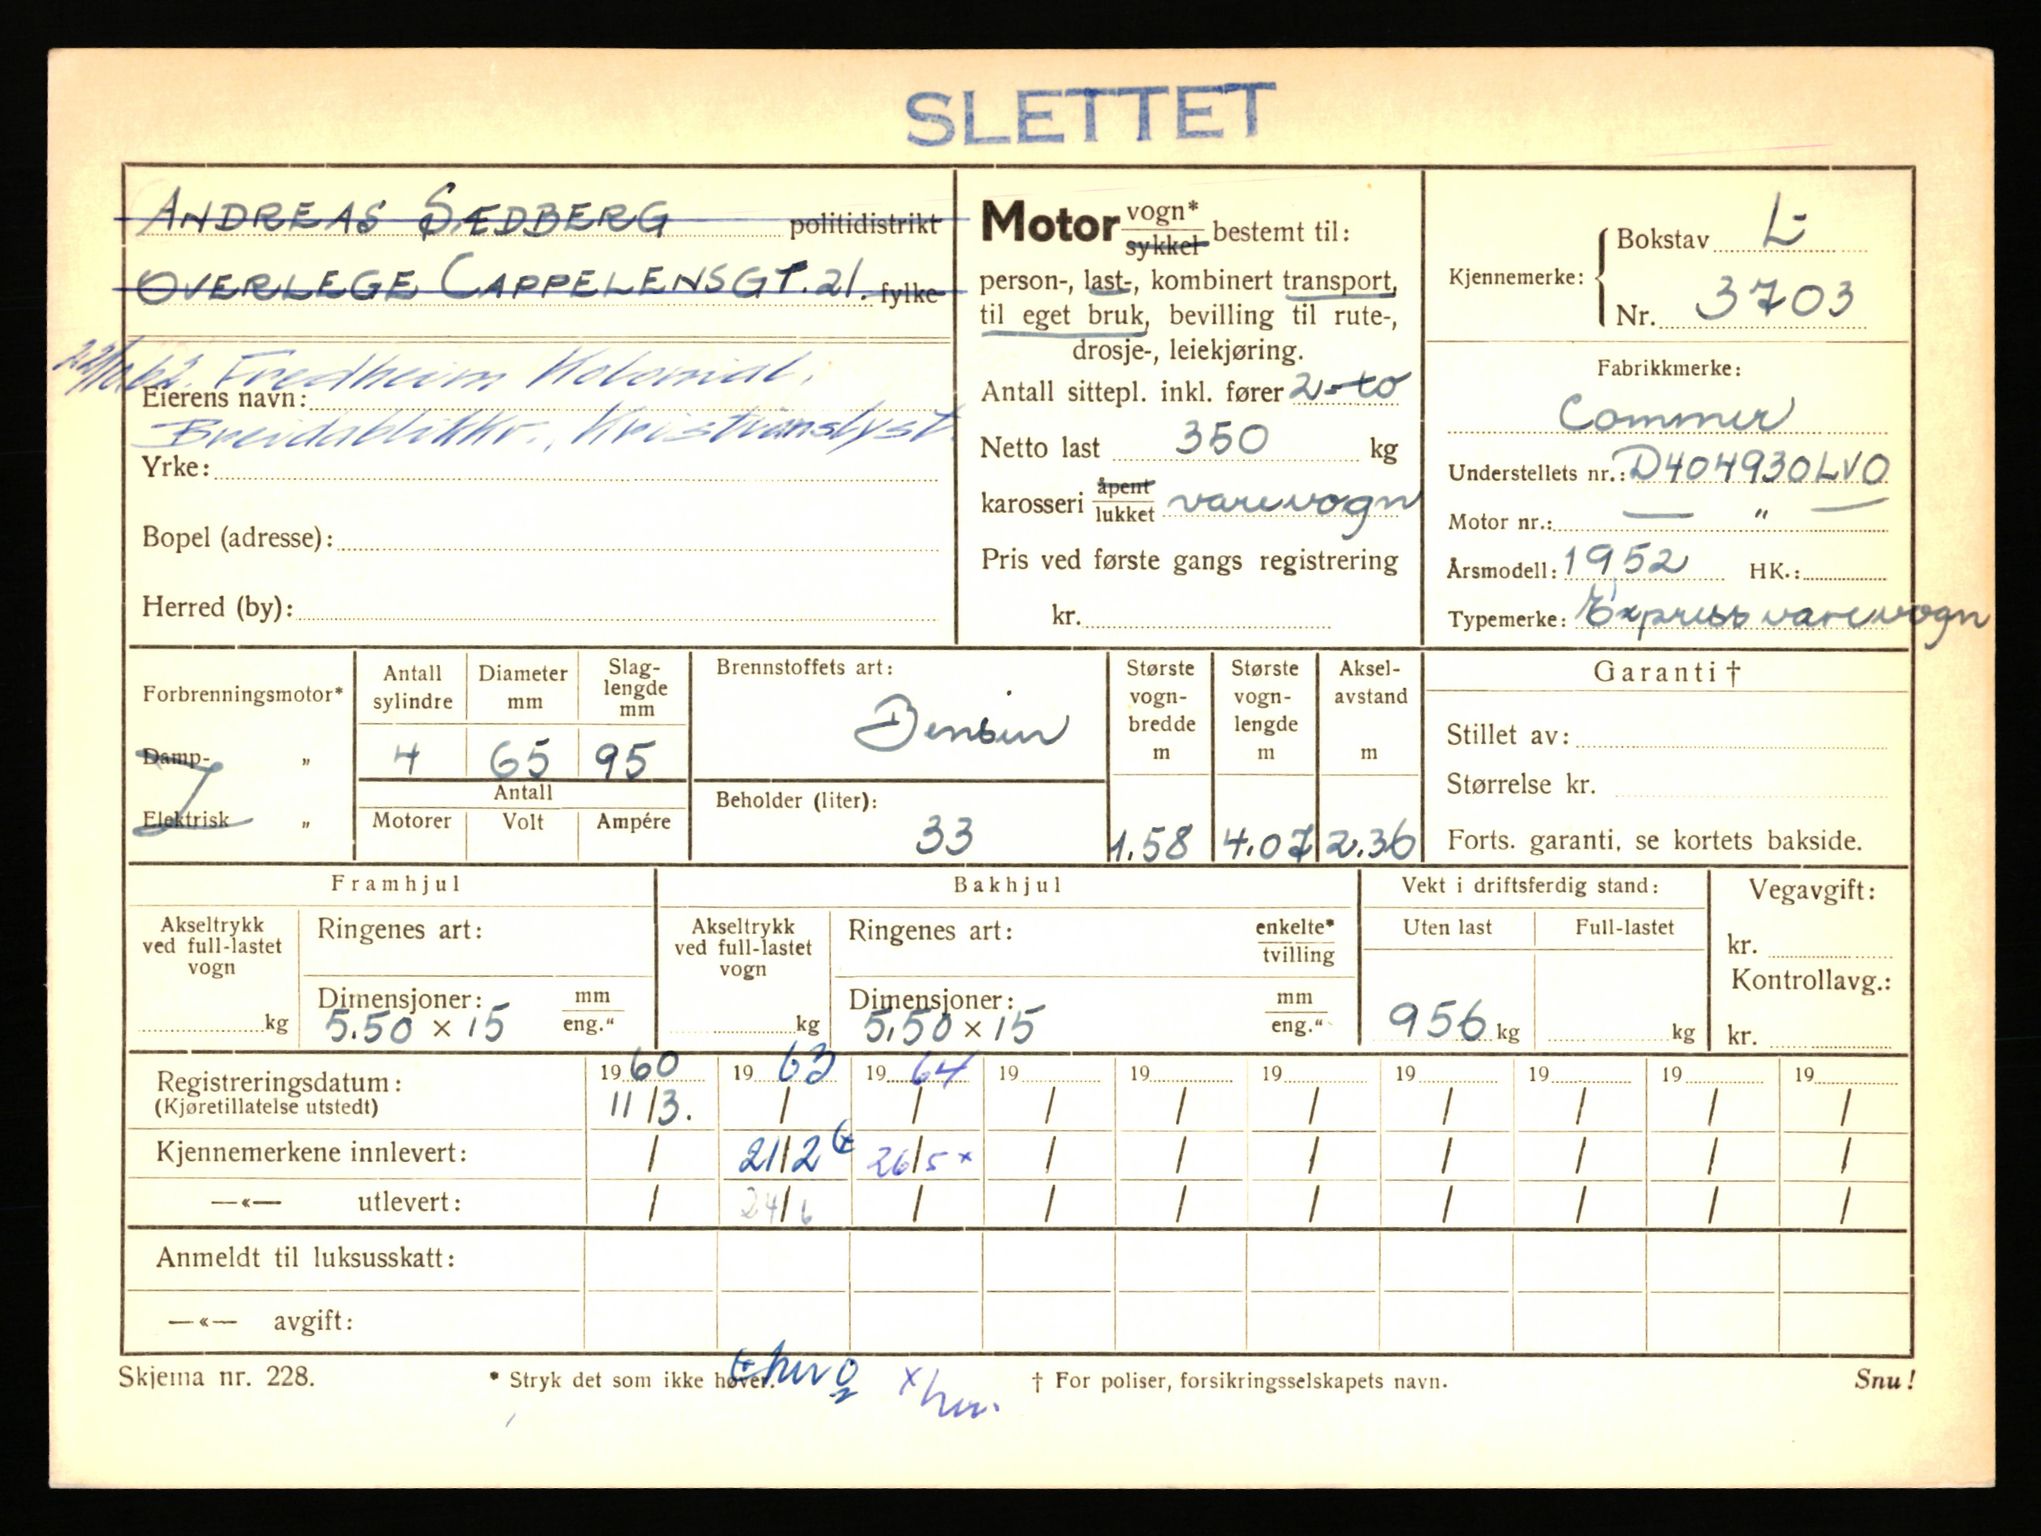 SLETTET
ANDREAS SÆDBERG politidistrikt
OVERLEGE CAPPELENSGT. 21. fylke
Fredheim Kolonial.
Eierens navn:
Breidablikkv., Kristianslyst.
Yrke:
Bopel (adresse):
Herred (by):
Motor vogn* sykkel bestemt til:
person-, last-, kombinert transport,
til eget bruk, bevilling til rute-,
drosje-, leiekjøring.
Antall sittepl. inkl. fører 2-to
Netto last 350 kg
karosseri åpent lukket varevogn
Pris ved første gangs registrering
kr.
Kjennemerke: Bokstav L-
Nr. 3703
Fabrikkmerke:
Commer
Understellets nr.: D404930LVO
Motor nr.: — " —
Årsmodell: 1952 HK.:
Typemerke: Express varevogn
Forbrenningsmotor*
Damp- "
Elektrisk "
Antall sylindre
Diameter mm
Slag-lengde mm
4 65 95
Antall
Motorer Volt Ampére
Brennstoffets art:
Bensin
Beholder (liter):
33
Største vogn-bredde m
1.58
Største vogn-lengde m
4.07
Aksel-avstand m
2.36
Garanti †
Stillet av:
Størrelse kr.
Forts. garanti, se kortets bakside.
Framhjul
Akseltrykk ved full-lastet vogn
kg
Ringenes art:
Dimensjoner: mm eng."
5.50 × 15
Bakhjul
Akseltrykk ved full-lastet vogn
kg
Ringenes art: enkelte* tvilling
Dimensjoner: mm eng."
5,50 × 15
Vekt i driftsferdig stand:
Uten last Full-lastet
956 kg kg
Vegavgift:
kr.
Kontrollavg.:
kr.
Registreringsdatum: 1960 1963 1964 19 19 19 19 19 19 19
(Kjøretillatelse utstedt) 11/3. / / / / / / / / /
Kjennemerkene innlevert: / 21/2 26/5 × / / / / / / /
—«— utlevert: / 24/6 / / / / / / / /
Anmeldt til luksusskatt:
—«— avgift:
Skjema nr. 228. * Stryk det som ikke høver. † For poliser, forsikringsselskapets navn. Snu!